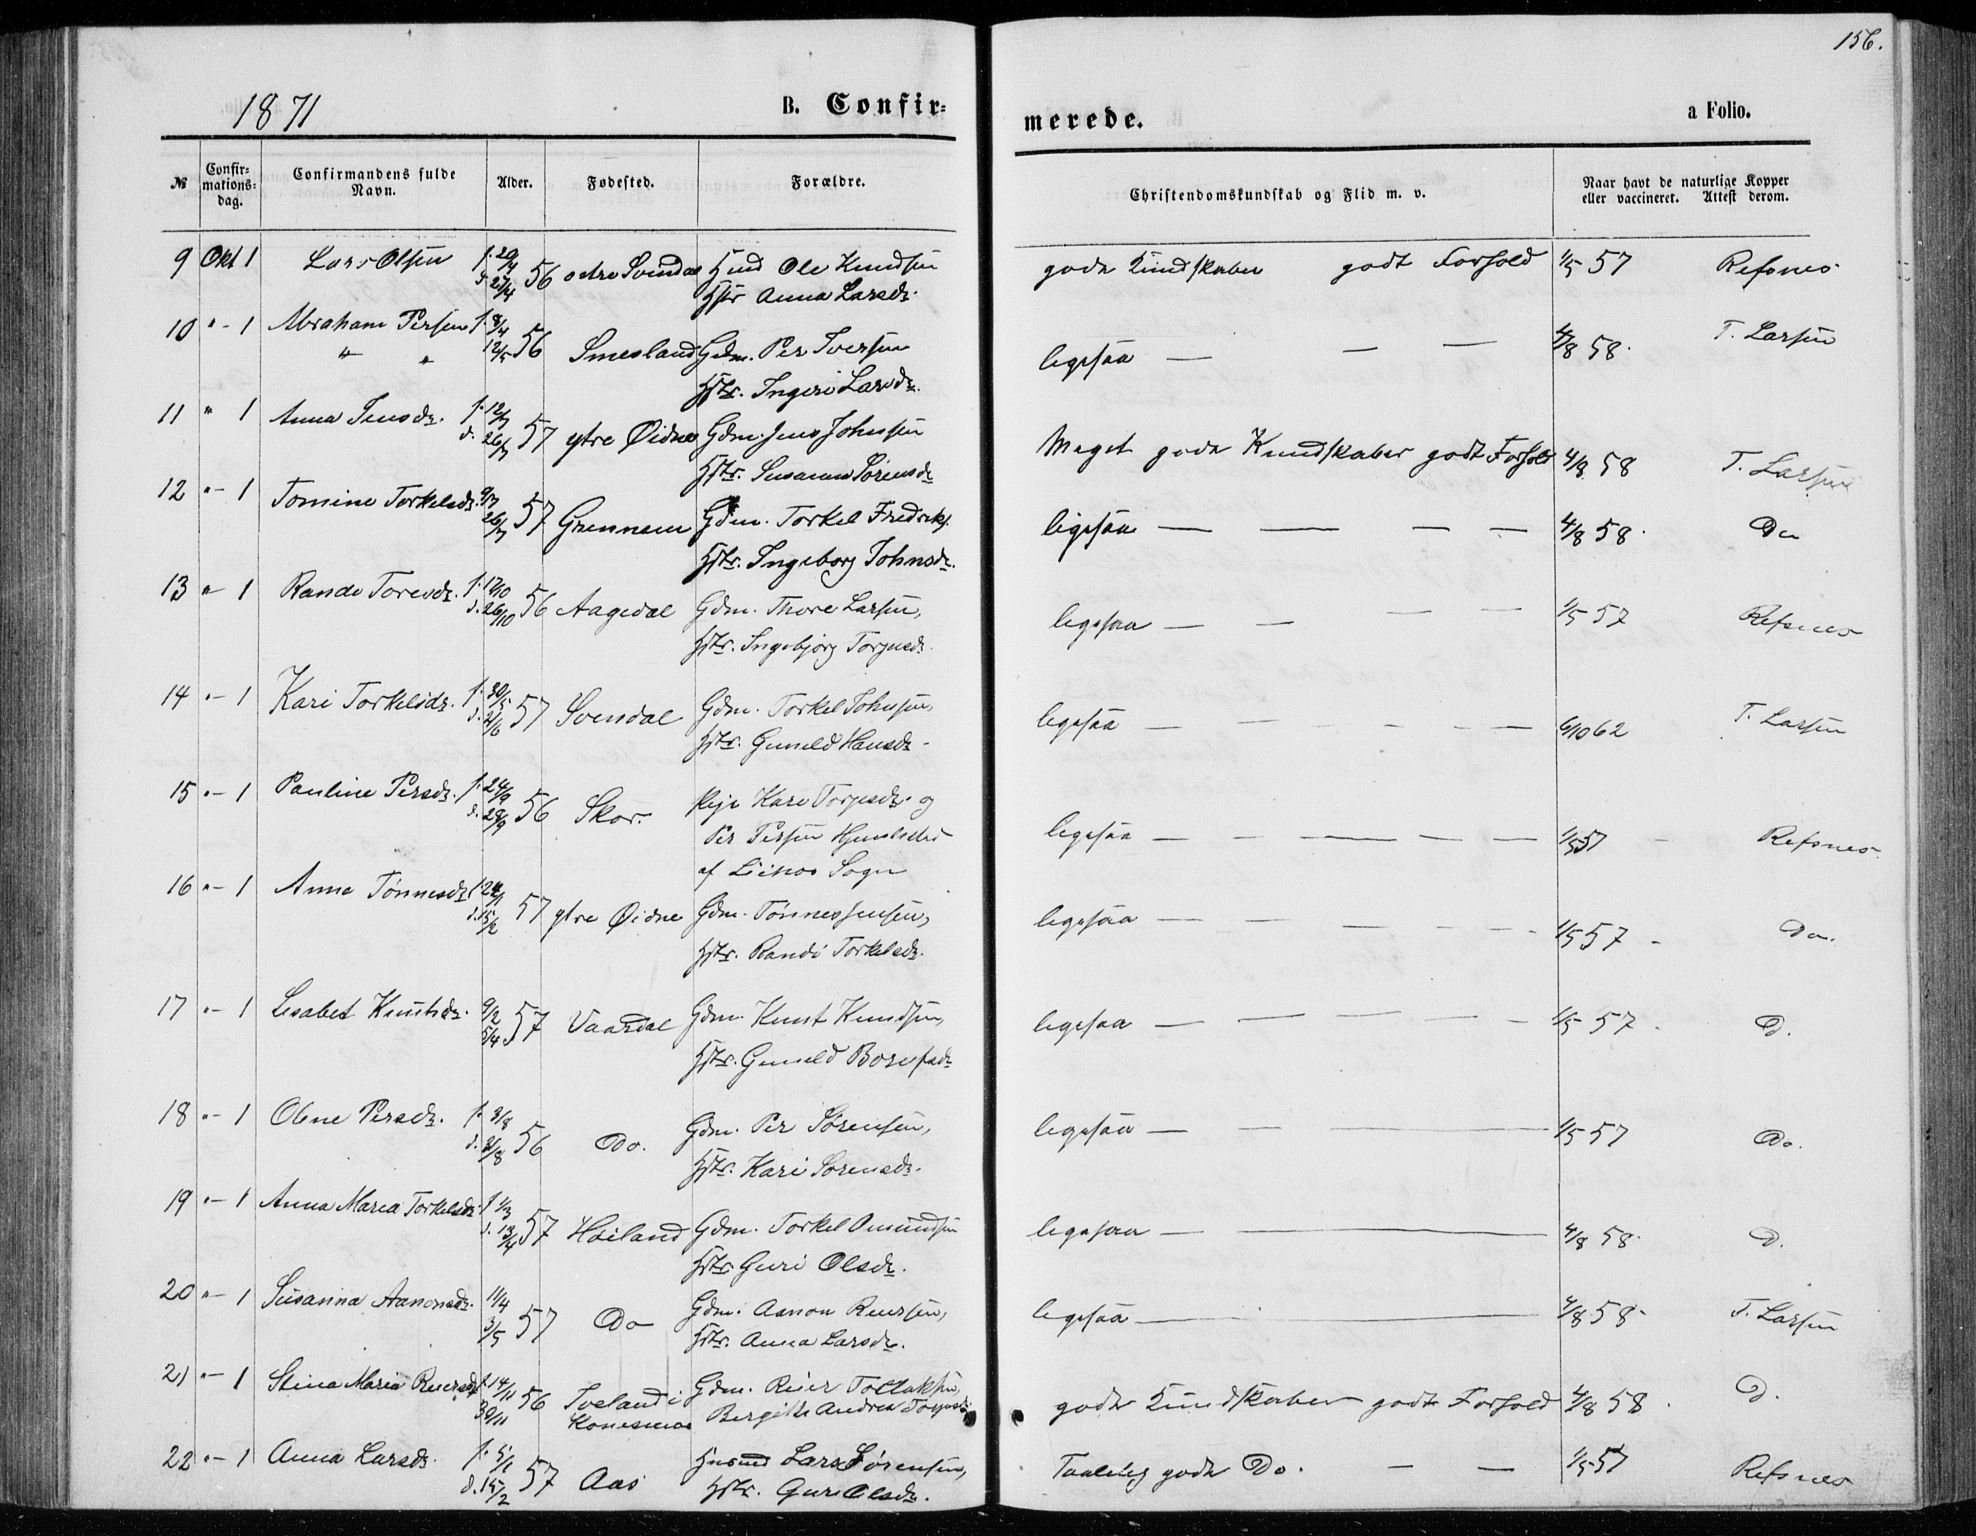 156.
1871
B. Confir-
merede.
a Folio.
№
Confir-
mations-
dag.
Confirmandens fulde
Navn.
Alder.
Fødested.
Forældre.
Christendomskundskab og Flid m. v.
Naar havt de naturlige Kopper
eller vaccineret. Attest derom.
9 Okt 1 Lars Olsen f. 20/4 d. 27/4 56 Ole Knudsen
Hstr Anna Larsdr. gode Kundskaber godt Forhold 1/5 57 Refsnes
10 " - 1 Abraham Persen f. 8/4 12/5 56 Smesland Gdm. Per Iversen
" "
Hstr. Ingeri Larsdr. ligesaa — — — 4/8 58. T. Larsen
11 " 1 Anna Jensdr. f. 12/7 d. 26/7 57 ytre Øidne Gdm. Jens Johnsen
Hstr. Susanna Sørensdr Meget gode Kundskaber godt Forhold 4/8 58 T. Larsen
12 " - 1 Tomine Torkelsdr. 9/7 26/7 57 Grennem Gdm. Torkel Fredriks.
Hstr. Ingeborg Johnsdr. ligesaa — — — — 4/8 58. Do
13 " 1 Rande Toresdr. f. 17/10 d. 26/10 56 Aagedal Gdm. Thore Larsen,
Hstr. Ingebjørg Torjusdr. ligesaa — — — — 1/5 57 Refsnes
14 " - 1 Kari Torkelsdr. f. 30/5 d. 2/6 57 Svendal Gdm. Torkel Johnsen,
Hstr. Guneld Hansdr. ligesaa — — — — — 6/10 62 T. Larsen
15 " - 1 Pauline Persdr. f. 24/9 d. 28/9 56 Skor. Pige Kari Torjusdr. og
Per Persen
af Sogn ligesaa — — — — — — 1/5 57 - Refsnes.
16 " - 1 Anne Tønnesdr f. 24/1 d. 15/2 57 ytre Øidne Gdm. Tønnes Jensen,
Hstr. Randi Torkelsdr. ligesaa — — — — — 1/5 57 - Do.
17 " - 1 Lisabet Knutsdr. 9/2 5/4 57 Vaardal Gdm. Knut Knudsen,
Hstr. Guneld ligesaa — — — — — 1/5 57 - D.
18 " - 1 Olene Persdr. f. 3/8 d. 3/8 56 Do. Gdm. Per Sørensen,
Hstr. Kari Sørensdr. ligesaa — — — 1/5 57 Do.
19 " - 1 Anna Maria Torkelsdr f. 1/3 d. 13/4 57 Høiland Gdm. Torkel Omundsen
Hstr Guri Olsdr. ligesaa — — 4/8 58. D.
20 " - 1 Susanna Aanonsdr. 11/4 3/5 57 Do Gdm. Aanon Reiersen,
Hstr. Anna Larsdr. ligesaa — 4/8 58 - T. Larsen
21 " - 1 Stina Maria Reiersdr f. 14/11 30/11 56 Tveland i
Konesmo Gdm. Reier Tollaksen,
Bergithe Andrea gode Kundskaber godt Forhold 4/8 58. D.
22 " - 1 Anna Larsdr. f. 5/1 d. 15/2 57 Aas Lars Sørensen,
Hstr. Guri Olsdr. Taalelig gode Do. — — 1/5 57 Refsnes